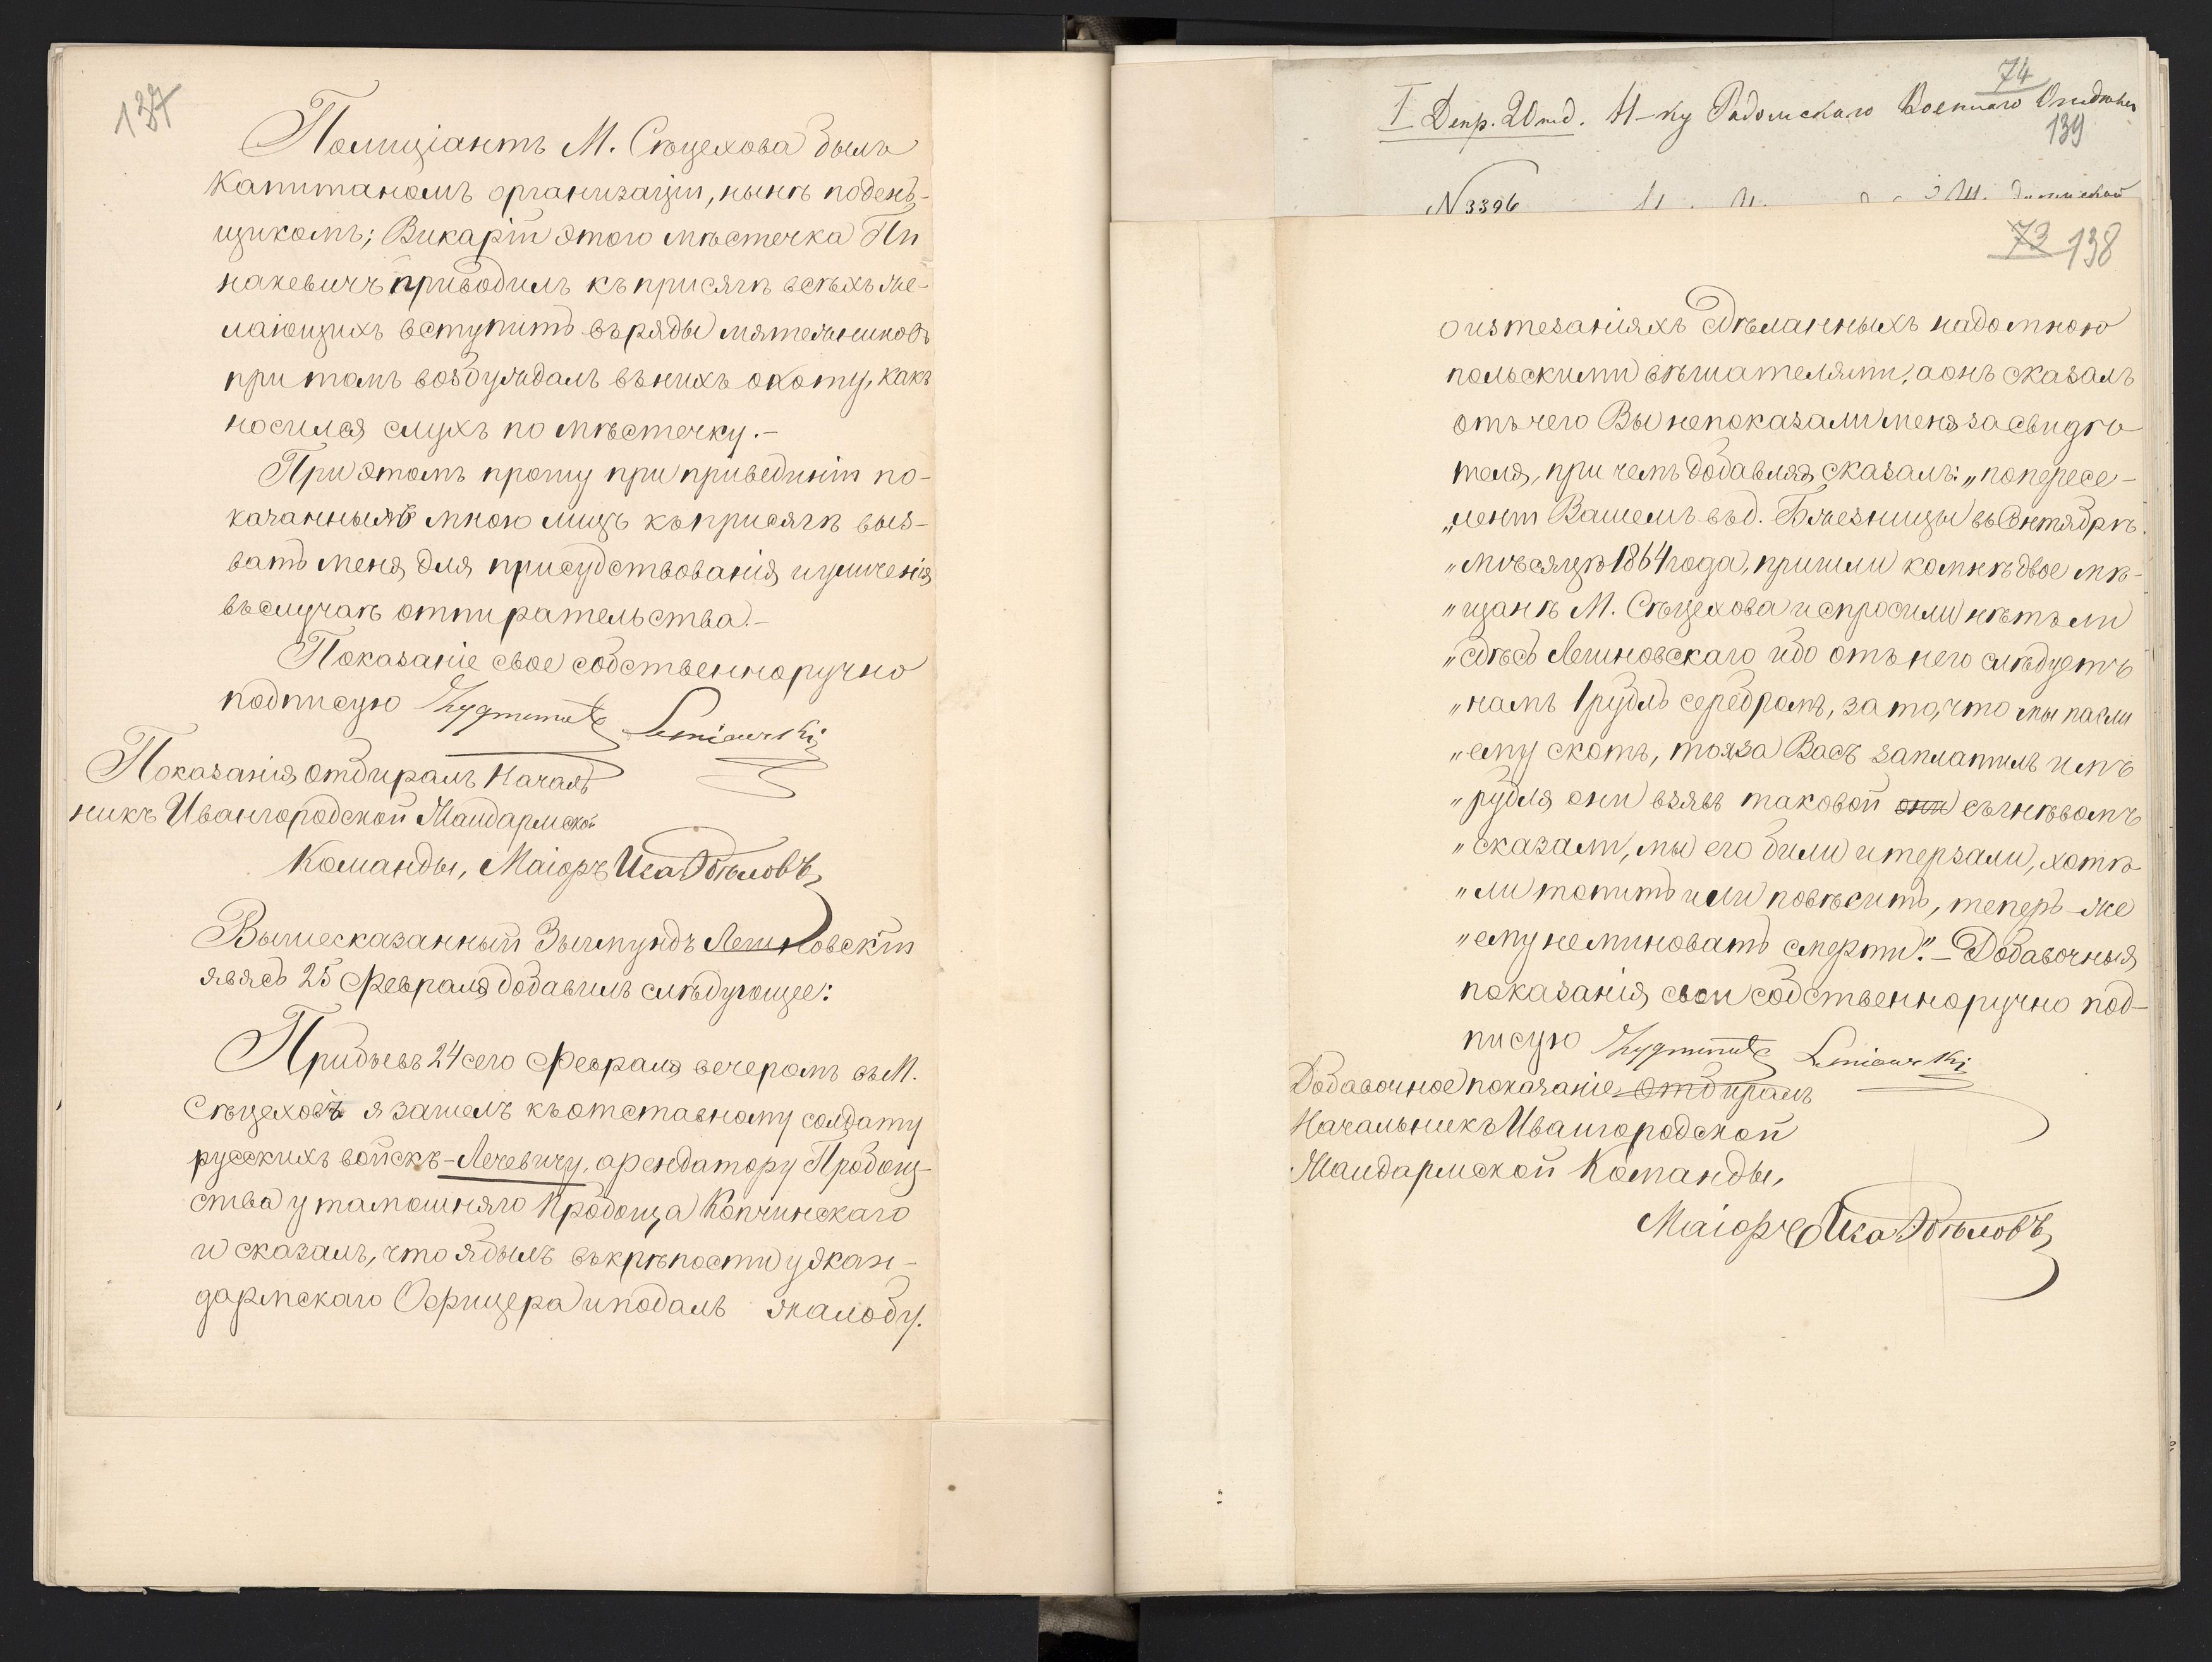 137
Полиціантъ М. Сѣцехова былъ
Капитаномъ организаціи, нынѣ поденъ-
щикомъ; Викарій этого мѣстечка Пи
накевичъ приводилъ къ присягѣ всѣхъ же-
лающихъ вступить въ ряды мятежниковъ
при томъ возбуждалъ въ нихъ охоту, какъ
носился слухъ по мѣстечку.-
При этомъ прошу при приведеніи по-
казанныхъ мною лицъ къ присягѣ выз-
вать меня для присудствованія и уличенія
въ случаѣ отпирательства.-
Показаніе свое собственноручно
подписую Zygmunt Leniewski
Показанія отбиралъ Началь
никъ Ивангородской Жандармской
Команды, Маіоръ
Вышесказанный Зыгмундъ Лениовскій
явясь 25 Февраля добавилъ слѣдующее:
Прибывъ 24 сего Февраля вечеромъ въ М.
Сѣцеховъ я зашелъ къ отставному солдату
русскихъ войскъ-Лечевичу, арендатору Пробощ-
ства у тамошняго Пробоща Копчинскаго
и сказалъ, что я былъ въ крѣпости у жан-
дармскаго Офицера и подалъ жалобу.
74
I Депр. 2 Отд. Н-ку Радомскаго Военнаго Отдѣла
139
N 3396
73 138
о изтезаніяхъ сдѣланныхъ надо мною
польскими вѣшателями, а онъ сказалъ
отъ чего Вы не показали меня за свидѣ
теля, при чемъ добавляя сказалъ: „по пересе-
„леніи Вашемъ въ д. Бжезницы въ Сентябрѣ
„мѣсяцѣ 1864 года, пришли ко мнѣ двое мѣ-
„щанъ М. Сѣцехова и спросили нѣтъ ли
„сдѣсь Лениовскаго ибо отъ него слѣдуетъ
„намъ 1 рубль серебромъ, за то, что мы пасли
„ему скотъ, то я за Васъ заплатилъ имъ
„рубля они взявъ таковой они съ гнѣвомъ
„сказали, мы его били и терзали, хотѣ
„ли топить и ли повѣсить, теперь же
„ему не миновать смерти“.- Добавочныя
показанія свои собственноручно под-
писую Zygmunt Leniewski
Добавочное показаніе отбиралъ
Начальникъ Ивангородской
Жандармской Команды,
Маіоръ